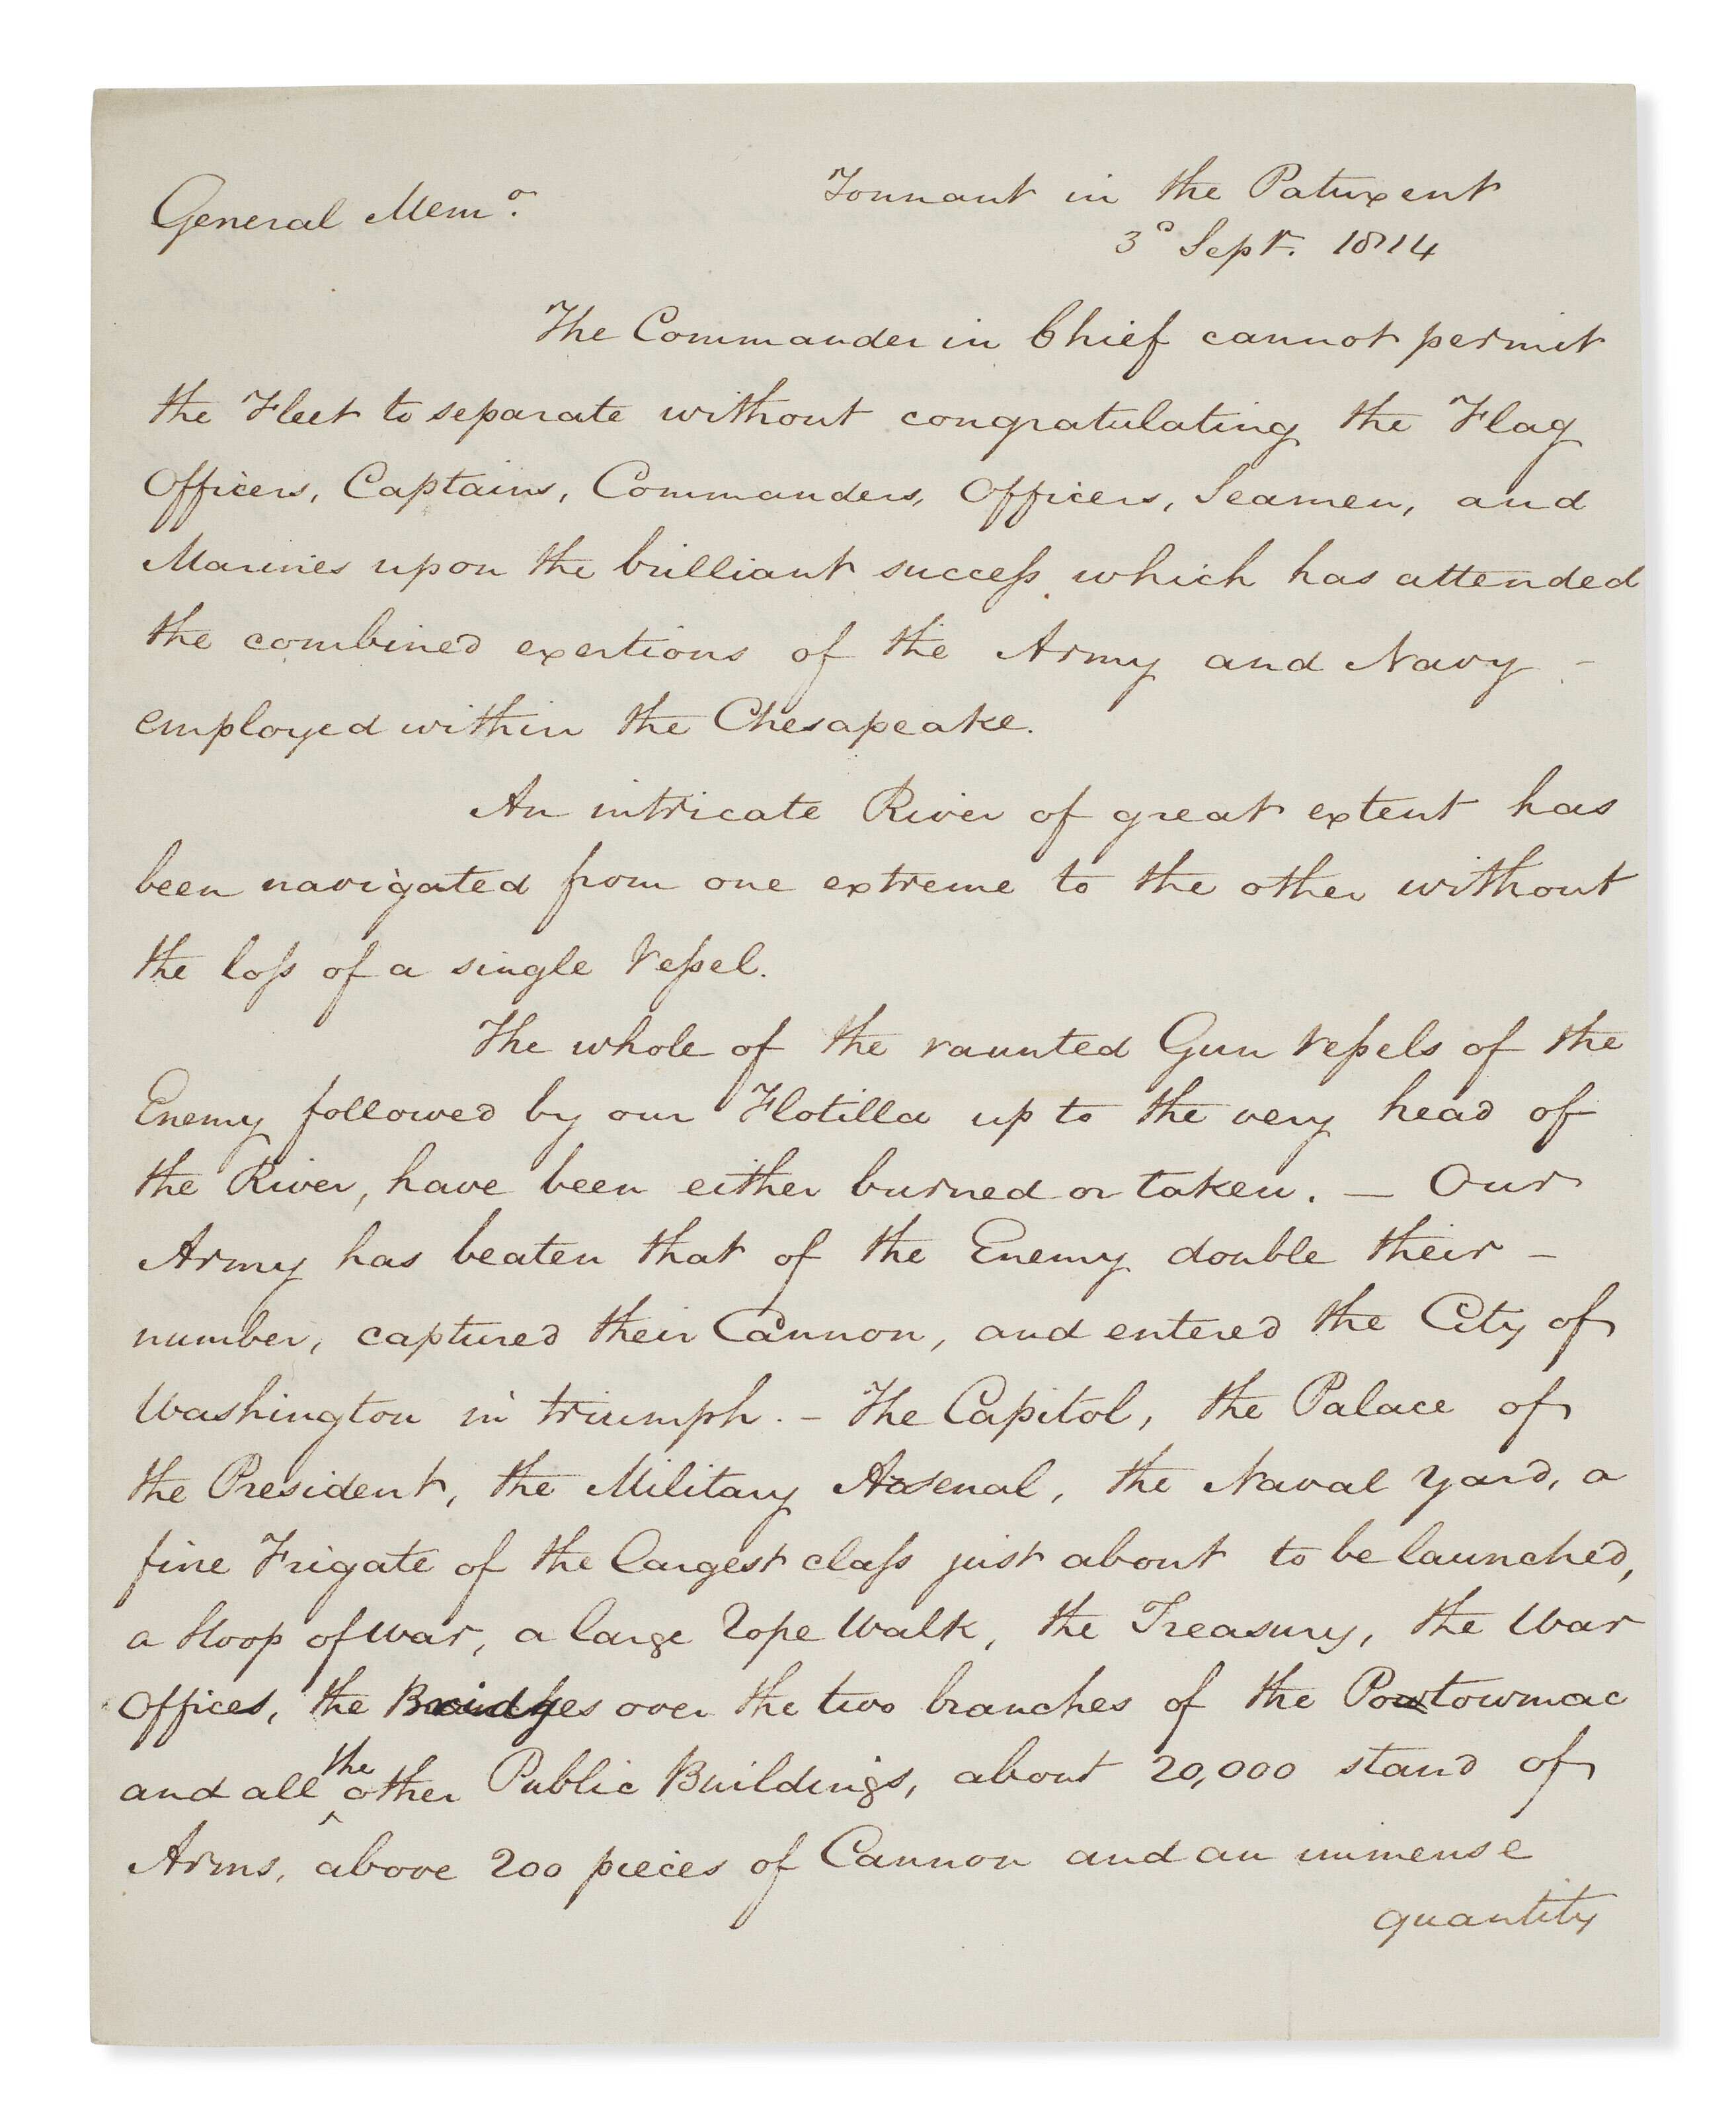 General Memo.
Tonnant in the Patuxent
3d Sept. 1814
The Commander in Chief cannot permit
the Fleet to separate without congratulating the Flag
Officers, Captains, Commanders, Officers, Seamen, and
Marines upon the brilliant succeſs which has attended
the combined exertions of the Army and Navy -
employed within the Chesapeake.
An intricate River of great extent has
been navigated from one extreme to the other without
the loſs of a single Veſsel.
The whole of the vaunted Gun Veſsels of the
Enemy followed by our Flotilla up to the very head of
the River, have been either burned or taken. — Our
Army has beaten that of the Enemy double their -
number, captured their Cannon, and entered the City of
Washington in triumph. - The Capitol, the Palace of
the President, the Military Arsenal, the Naval Yard, a
fine Frigate of the largest claſs just about to be launched,
a Sloop of War, a large Rope Walk, the Treasury, the War
Offices, the Bridges over the two branches of the Powtowmac
and all the other Public Buildings, about 20,000 stand of
Arms, above 200 pieces of Cannon and an immense
quantity